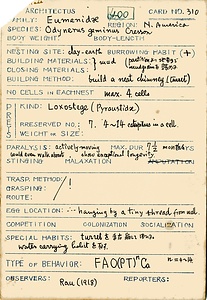 ARCHITECTUS CARD NO. 310
400
FAMILY: Eumenidae REGION: N. America
SPECIES: Odynerus geminus Cresson
BODY WEIGHT: BODY-LENGTH
NESTING SITE: clay-earth BURROWING HABIT (+)
BUILDING MATERIALS: } mud
CLOSING MATERIALS:
BUILDING METHOD: build a nest chimney (turret)
NO. CELLS IN EACH NEST max. 4 cells
PREY
KIND: Loxostege (Pyraustidae)
PRESERVED NO.: 7, 4-14 caterpillars in a cell
WEIGHT OR SIZE:
PARALYSIS: actively-moving MAX. DUR. 7½ months
STINGING MALAXATION
TRASP. METHOD:
GRASPING:
ROUTE:
EGG LOCATION: hanging by a tiny thread from
COMPETITION COLONIZATION SOCIALIZATION
SPECIAL HABITS: turret
water carrying habit
TYPE OF BEHAVIOR: FAO(PT)ᵐCa
OBSERVERS: Rau (1918) REPORTERS: